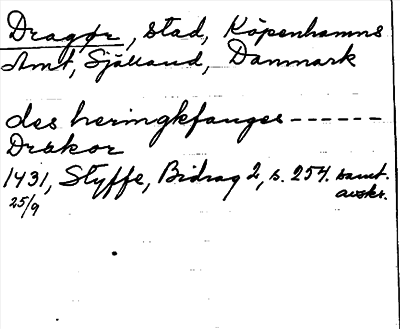 Dragør, stad, Köpenhamns
Amt, Själland, Danmark
des heringkfanges ------
Drakor
1431, Styffe, Bidrag 2, s. 254. samt.
25/9 avskr.